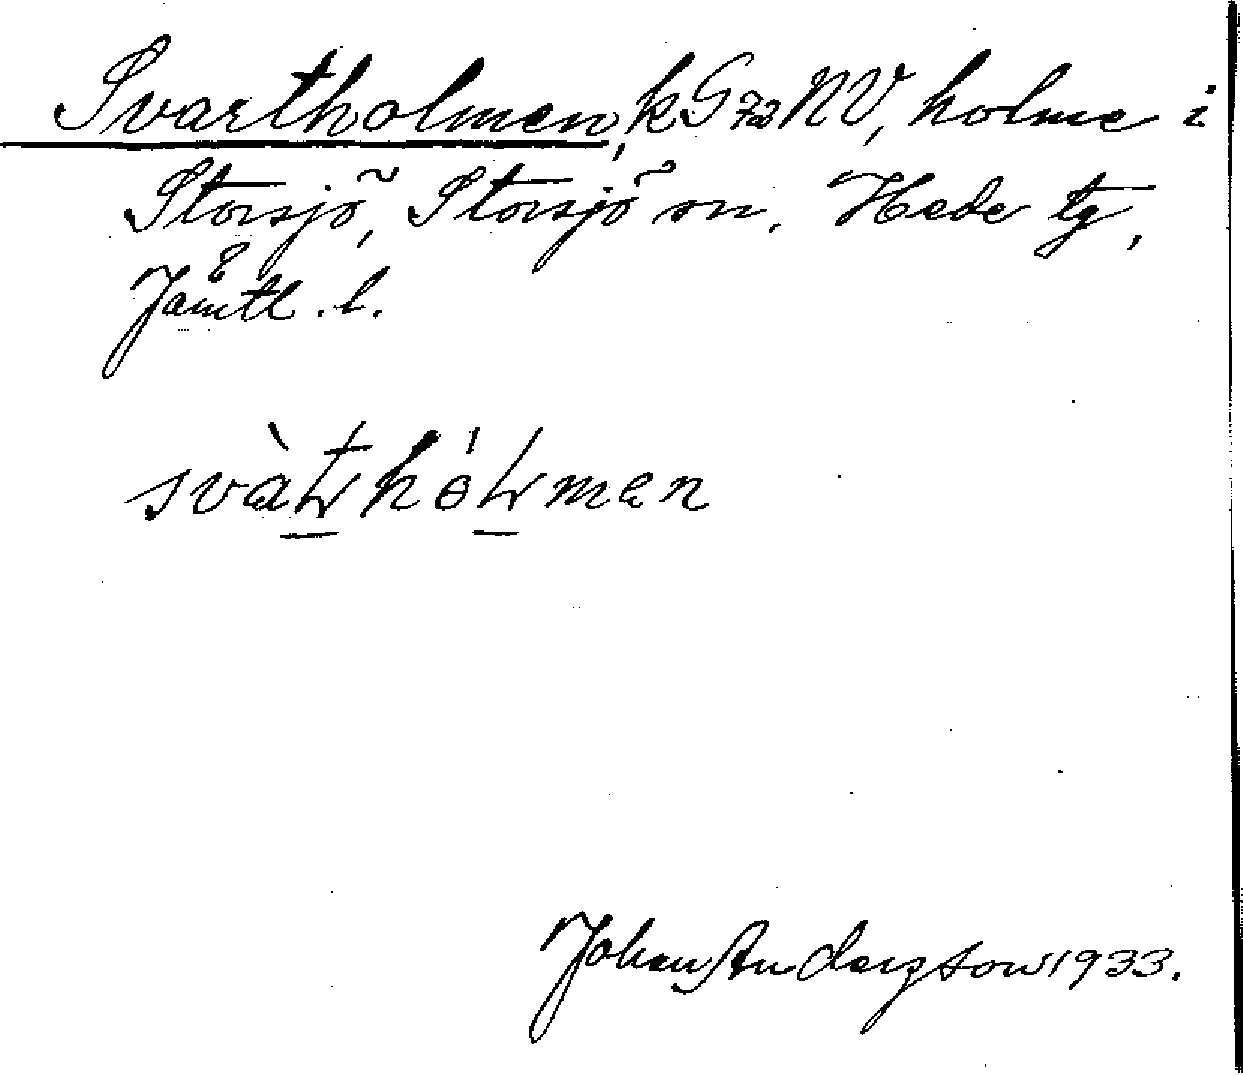 Svartholmen, kG72NV, holme i
Storsjö, Storsjö sn. Hede tg,
Jämtl. l.
Johan Andersson 1933.